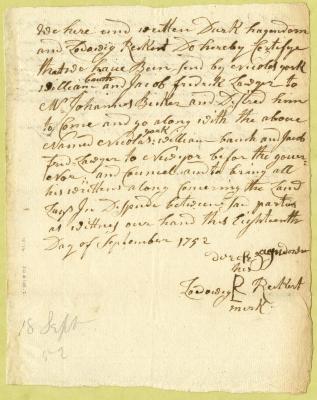 We here und written Durk hagendorn
and Lodowig Reckert Do hereby Certifye
that we have Been send by Nicolas york
william bauch and Jacob fredrik Lawger to
Mr Johannis Becker and Disired him
to Come and go along with the above
Named Nicolas york william bauch and Jacob
fred Lawger to Newyor befor the gover
=nor and Councel and to bring all
his writtens along Concering the Land
Lays In Disspude between the parties
as witnes our hand this Eighteenth
Day of September 1752
Dorck hagendorn
his
Lodowig R Reckert
merk
18 Sept
52